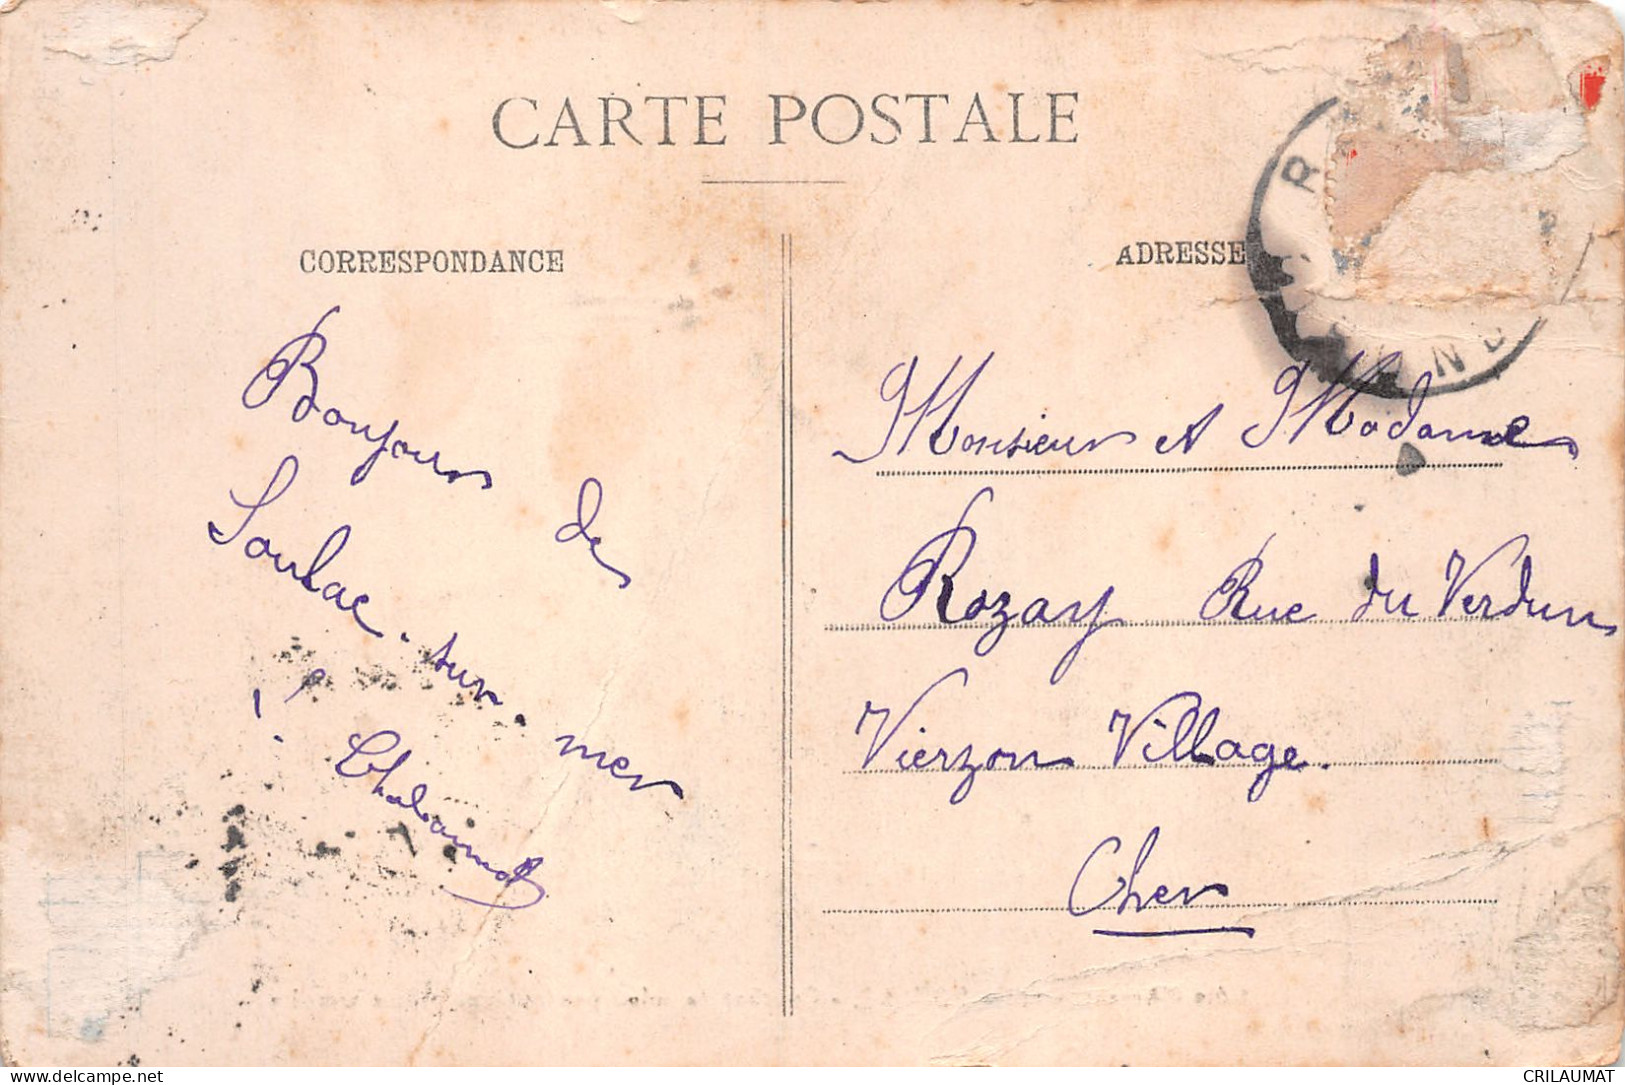 CARTE POSTALE
CORRESPONDANCE
ADRESSE
Bonjour de
Soulac-sur-mer
Monsieur et Madame
Rozay Rue du Verdun
Vierzon Village.
Cher
CRILAUMAT